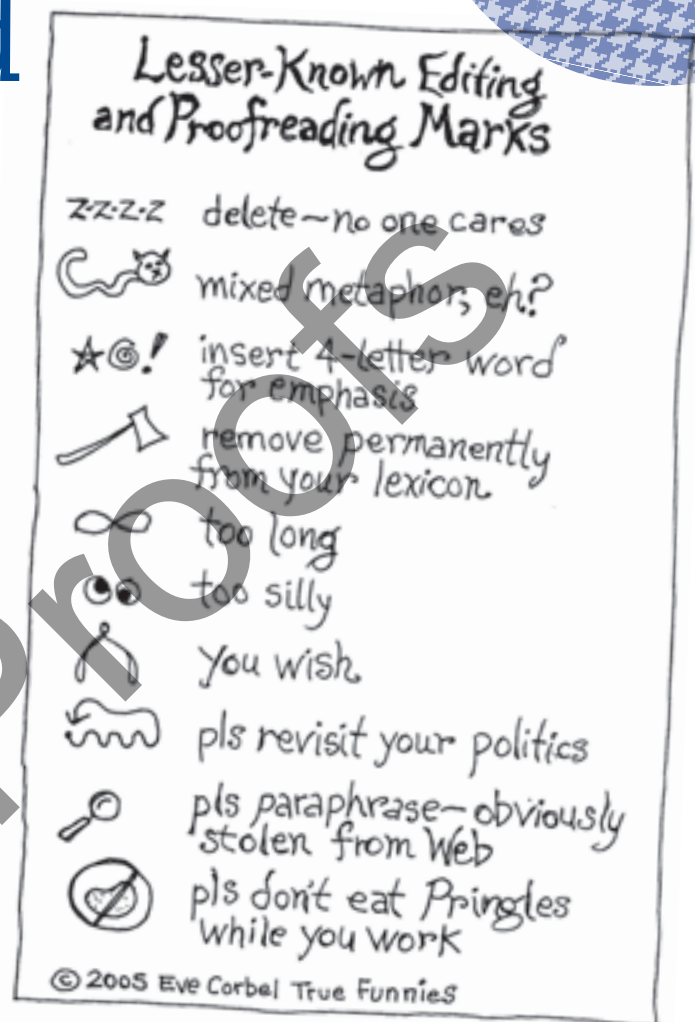 d
Lesser-Known Editing
and Proofreading Marks
z-z-z-z delete~no one cares
mixed metaphor, eh?
insert 4-letter word
for emphasis
remove permanently
from your lexicon
too long
too silly
you wish
pls revisit your politics
pls paraphrase—obviously
stolen from Web
pls don't eat Pringles
while you work
© 2005 Eve Corbel True Funnies
Proofs